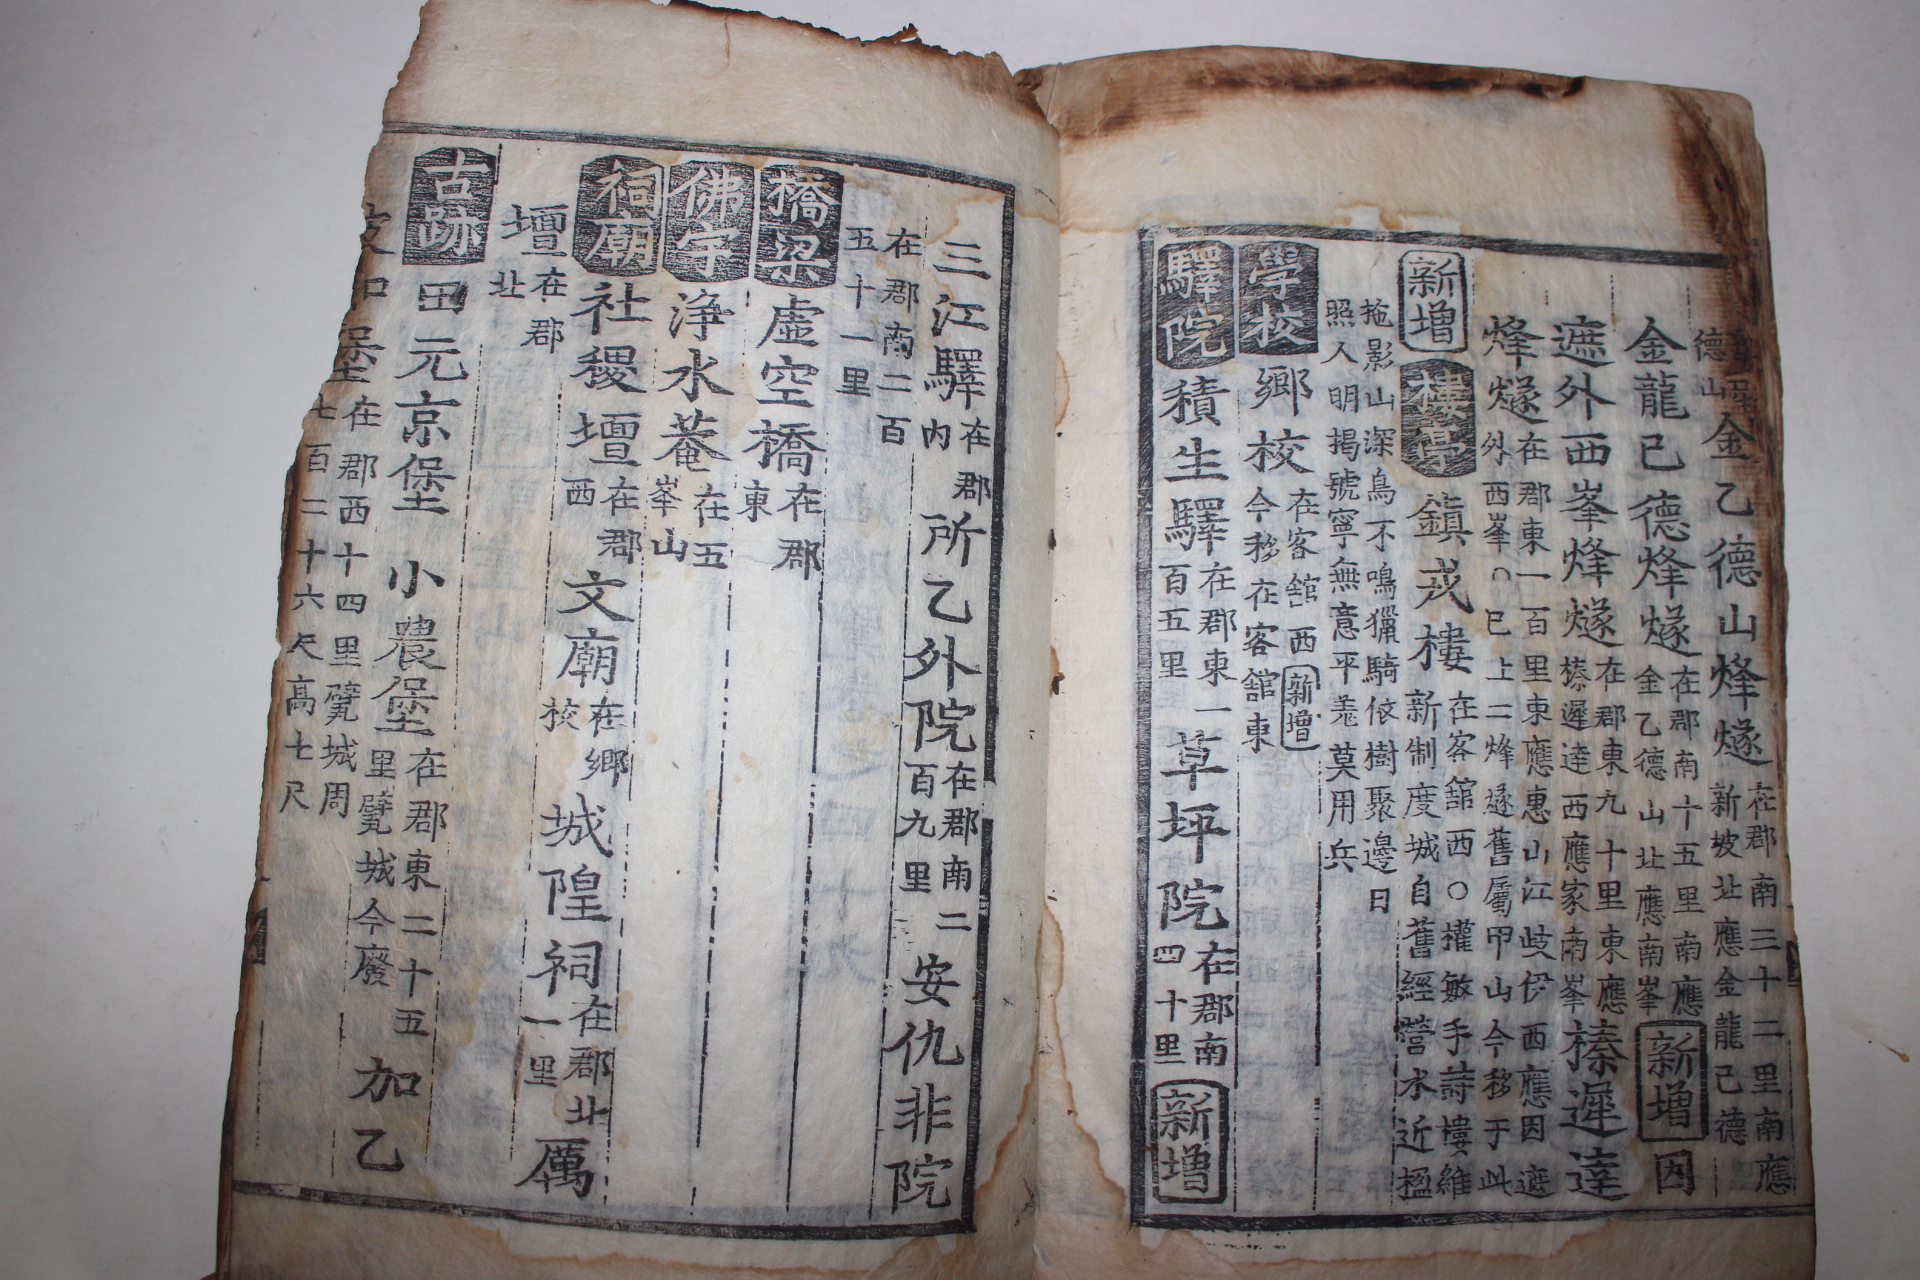 德山金乙德山烽燧在郡南三十二里南應新坡北應金龍己德
金龍已德烽燧在郡南十五里南應金乙德山北應南峯新增因
遮外西峯烽燧在郡東九十里東應榛遲達西應家南峯榛遲達
烽燧在郡東一百里東應惠山江歧伊西應因遮外西峯○已上二烽燧舊屬甲山今移于此
新增樓亭鎭戎樓在客舘西○權敏手詩樓維新制度城自舊經營水近楹
掩影山深鳥不鳴獵騎依樹聚邊日照人明揭號寧無意平羗莫用兵
學校鄕校在客舘西新增今移在客舘東
驛院積生驛在郡東一百五里草坪院在郡南四十里新增
三江驛在郡內所乙外院在郡南二百九里安仇非院
在郡南二百五十一里
橋梁虛空橋在郡東
佛宇淨水菴在五峯山
祠廟社稷壇在郡西文廟在鄕校城隍祠在郡北一里厲
壇在郡北
古跡田元京堡小農堡在郡東二十五里甓城今廢加乙
坡知堡在郡西十四里甓城周七百二十六尺高七尺